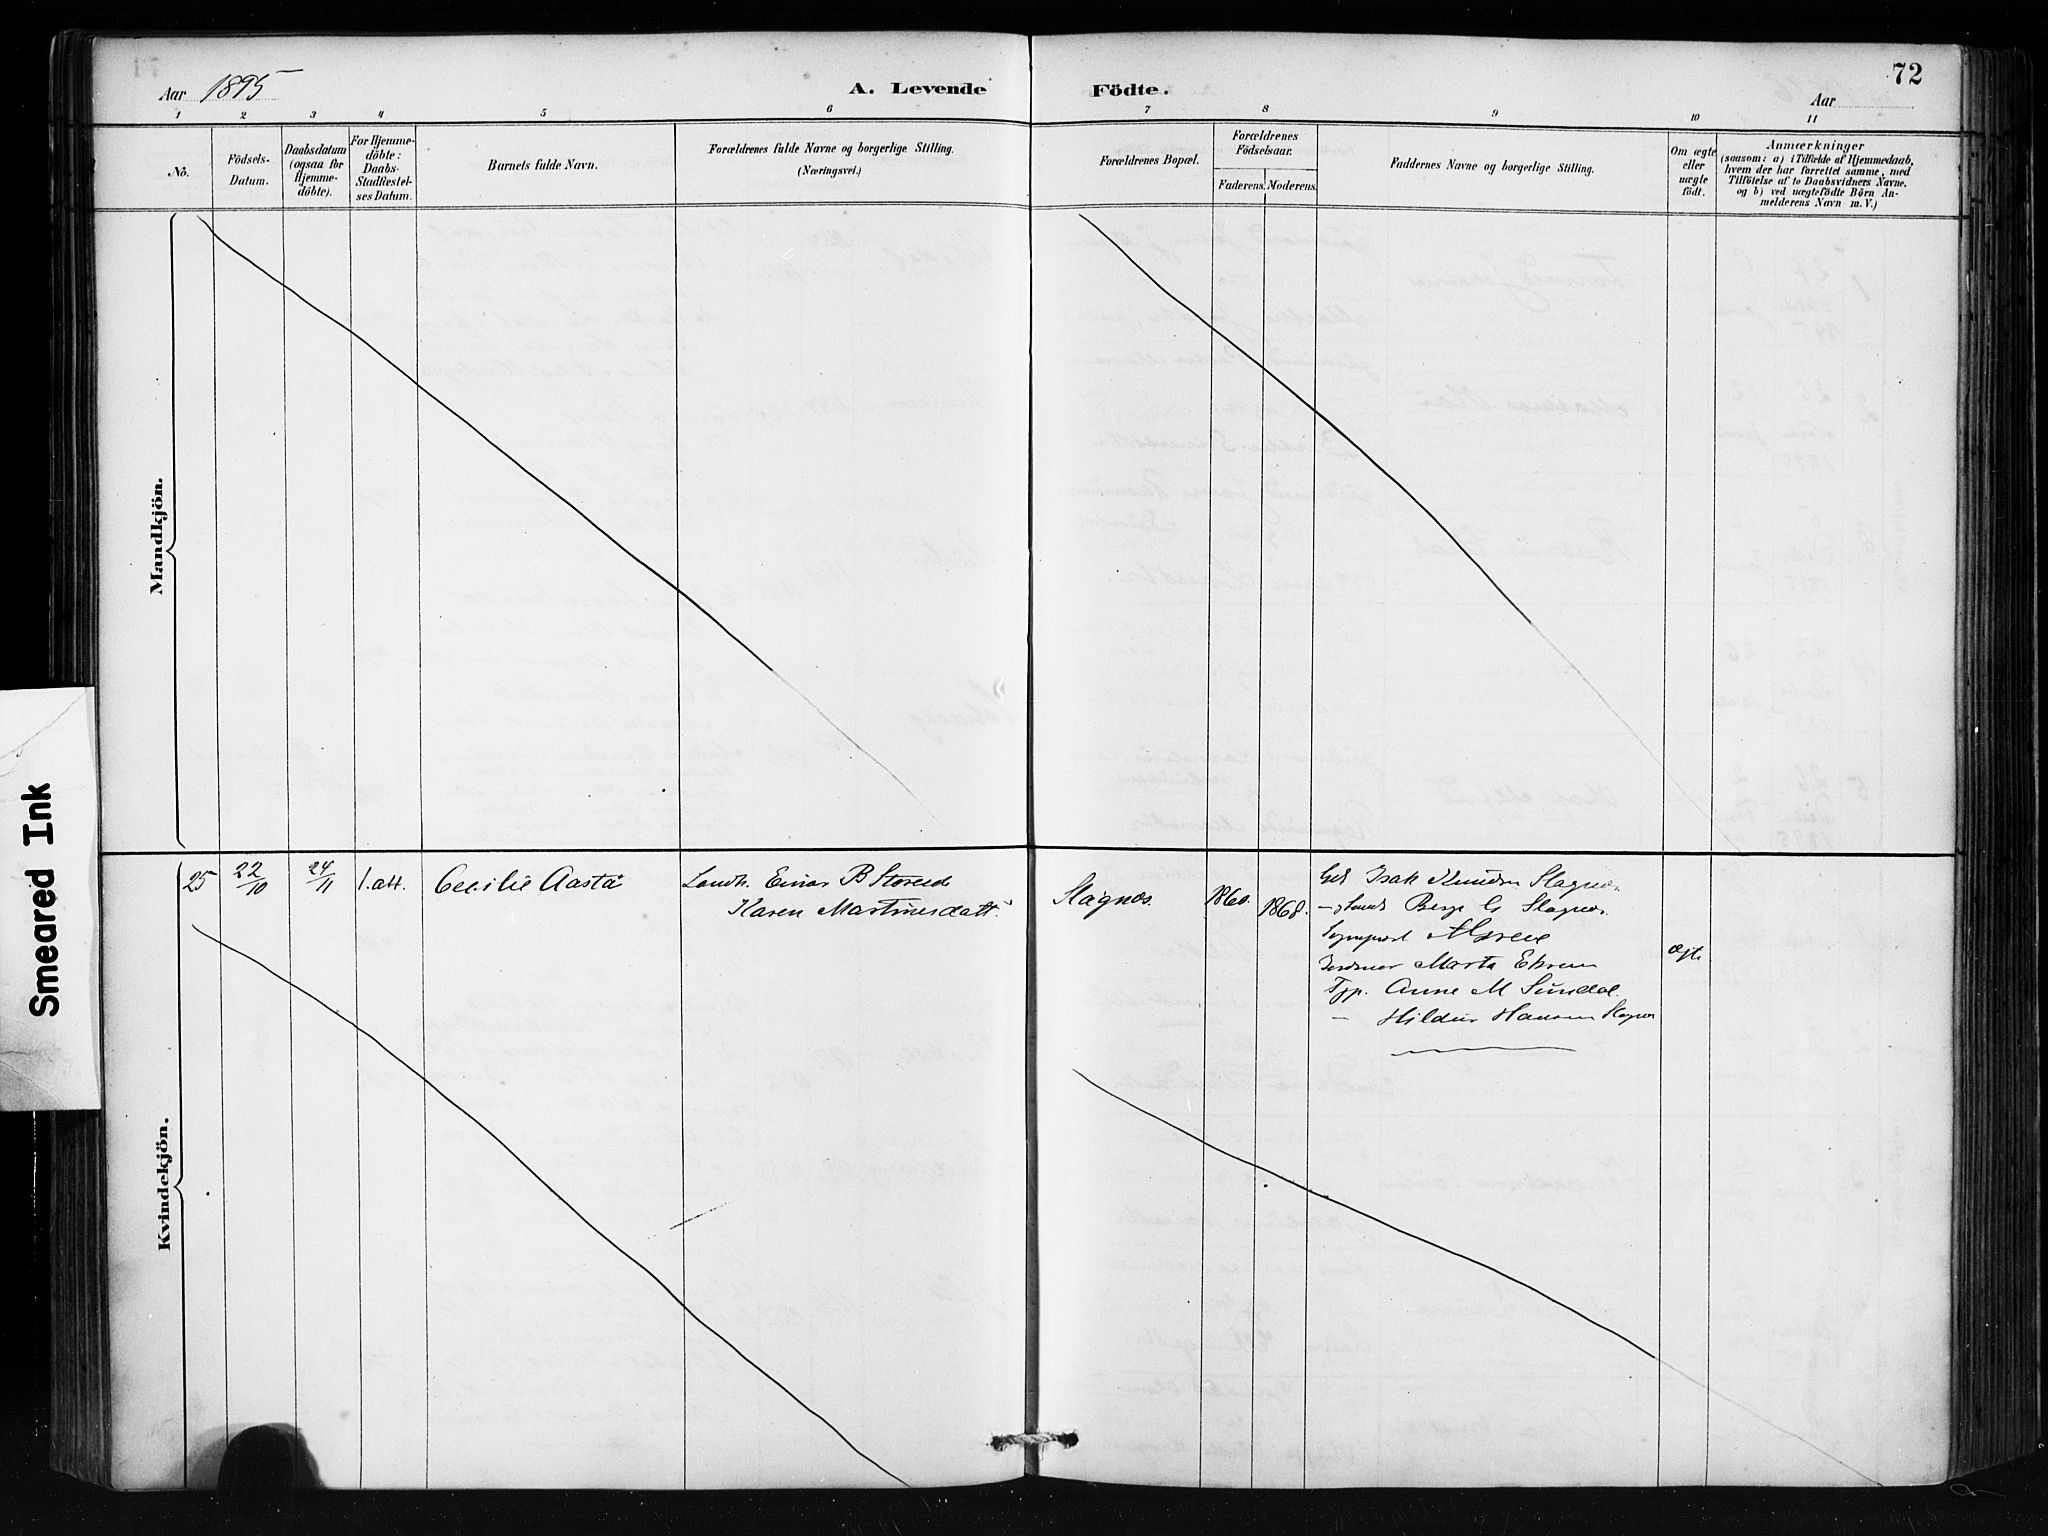 Aar 1895
A. Levende Födte.
72
Aar
1 2 3 4 5 6 7 8 9 10 11
No.
Födsels-Datum.
Daabsdatum (ogsaa for Hjemmedöbte).
For Hjemmedöbte: Daabs-Stadfæstelses Datum.
Barnets fulde Navn.
Forældrenes fulde Navne og borgerlige Stilling.
(Næringsvei.)
Forældrenes Bopæl.
Forældrenes Födselsaar.
Faderens. Moderens.
Faddernes Navne og borgerlige Stilling.
Om ægte eller uægte födt.
Anmærkninger
(saasom: a) i Tilfælde af Hjemmedaab,
hvem der har forrettet samme, med
Tilföielse af to Daabsvidners Navne,
og b) ved uægtefödte Börn An-
melderens Navn m. V.)
Mandkjön.
Smeared Ink
Kvindekjön.
25 22/10 24/11 1. att. Cecilie Aasta
Landh. Einar B Storeid
Karen Martinesdatt.
Slagnes. 1860. 1868.
Isak Knudsn Slagnes.
Berge G Slagnes.
Marta Ekrem
Anne M Sundal.
— Hildur Hansen Slagnes
ægte